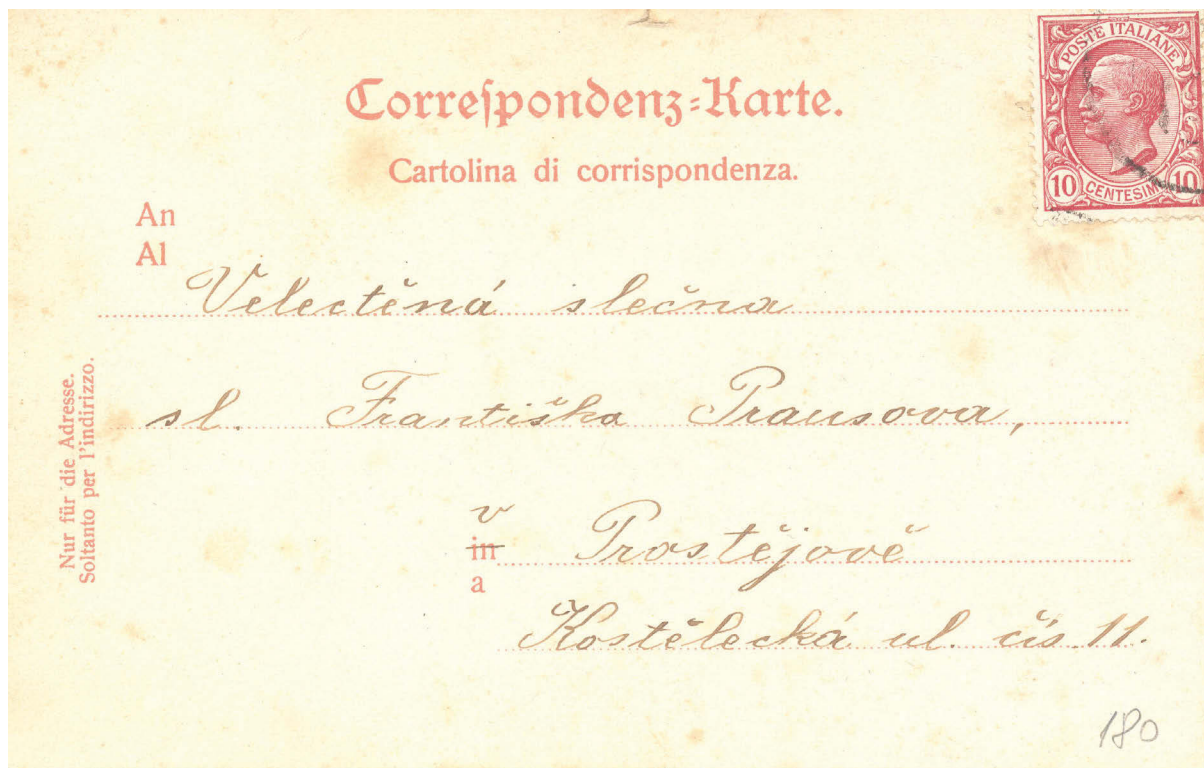 Correspondenz-Karte.
Cartolina di corrispondenza.
POSTE ITALIANE
10 CENTESIMI 10
An
Al
Velectěná slečna
sl. Františka Prausova,
v
in Prostějově
a
Kostělecká ul. čís. 11.
Nur für die Adresse.
Soltanto per l'indirizzo.
180